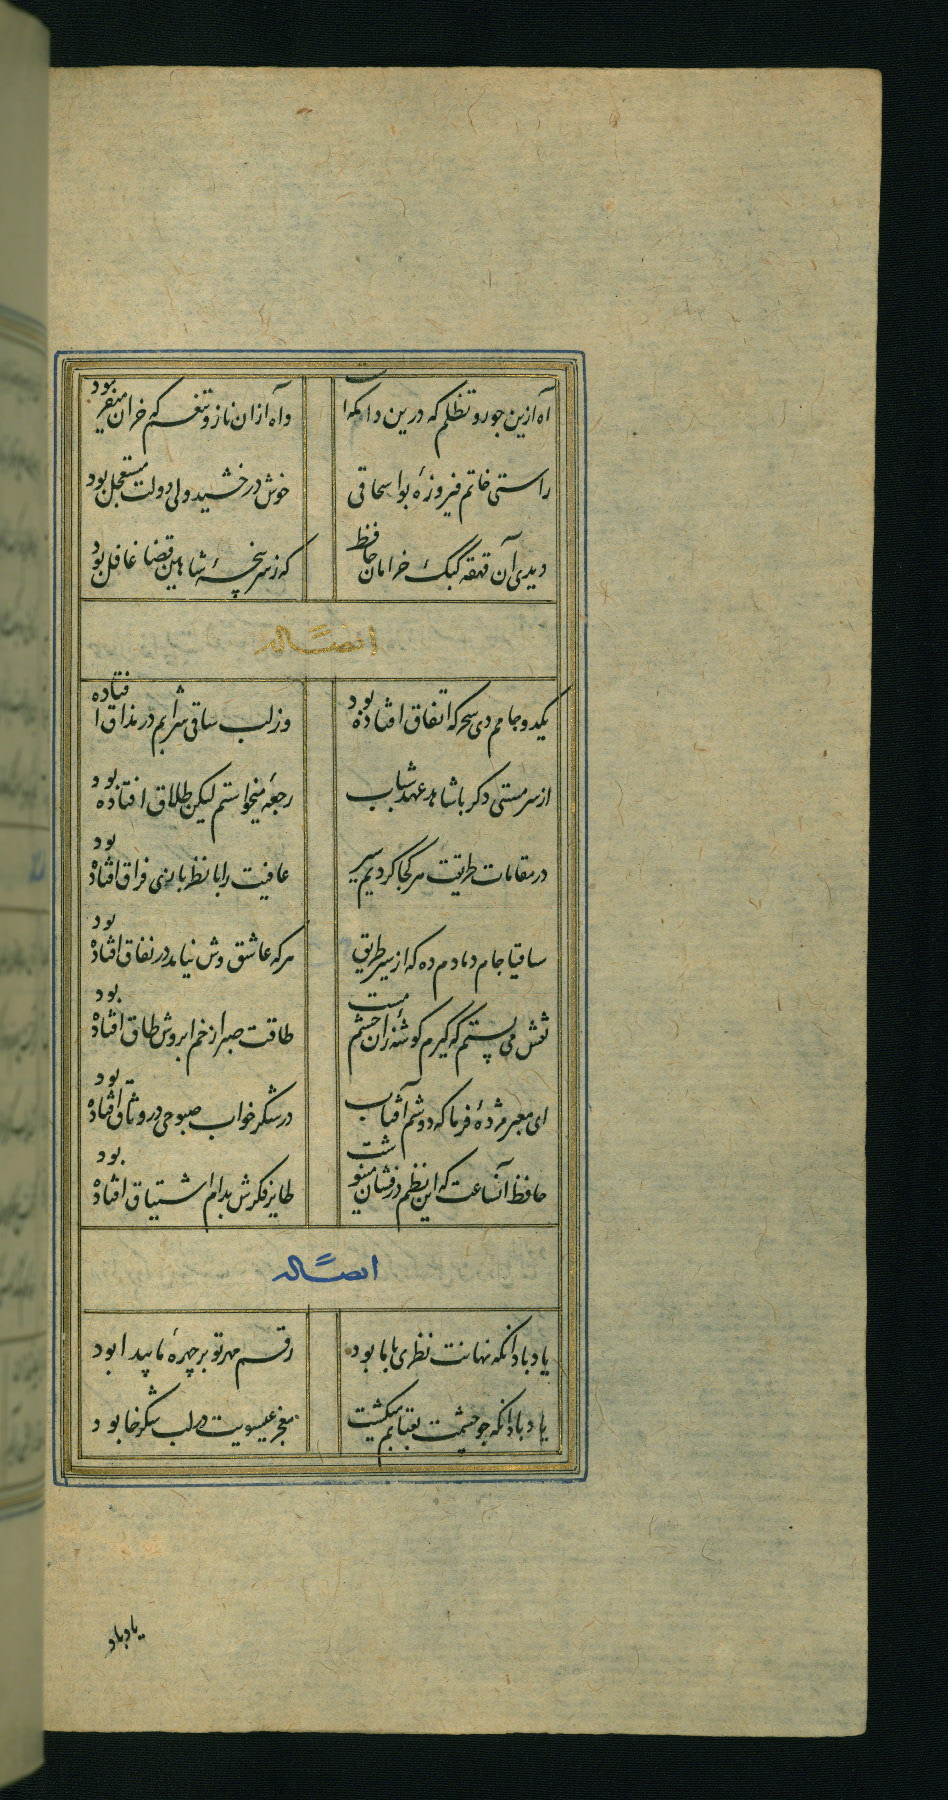 آه ازین جور و تظلم که درین دامگه است
وآه ازان ناز و تنعم که خران منفر بود
راستی خاتم فیروزهٔ بواسحاقی
خوش درخشید ولی دولت مستعجل بود
دیدی آن قهقه کبک خرامان حافظ
که ز سرپنجهٔ شاهین قضا غافل بود
ایضاً له
یکدو جامم دی سحرکه اتفاق افتاده بود
وز لب ساقی شرابم در مذاق افتاده
از سر مستی دکر با شاهد عهد شباب
رجعهٔ میخواستم لیکن طلاق افتاده بود
در مقامات طریقت هر کجا کردیم سیر
عافیت را با نظربازی فراق افتاده بود
ساقیا جام دمادم ده که از سیر طریق
هرکه عاشق وش نیامد در نفاق افتاده بود
نقش می بستم که گیرم کوشهٔ زان چشم مست
طاقت صبر از خم ابروش طاق افتاده بود
ای معبر مژدهٔ فرما که دوشم آفتاب
در شکر خواب صبوحی در وثاق افتاده بود
حافظ آنساعت که این نظم درفشان مینوشت
طایر فکرش بدام اشتیاق افتاده بود
ایضاً له
یاد باد آنکه نهانت نظری با ما بود
رقم مهر تو بر چهرهٔ ما پیدا بود
یاد باد آنکه چو چشمت بعتابم میکشت
معجز عیسویت در لب شکرخا بود
یاد باد